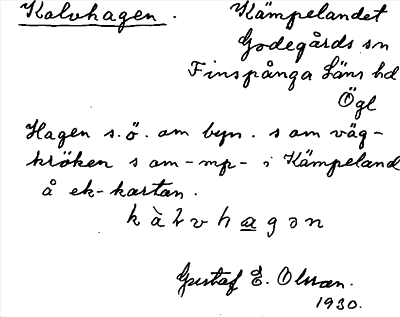 Kalvhagen. Kämpelandet
Godegårds sn
Finspånga Läns hd
Ögl
Hagen s.ö. om byn. s om väg-
kröken s om -mp- i Kämpeland
å ek-kartan.
k à l v h a g ə n
Gustaf E. Olsson.
1930.